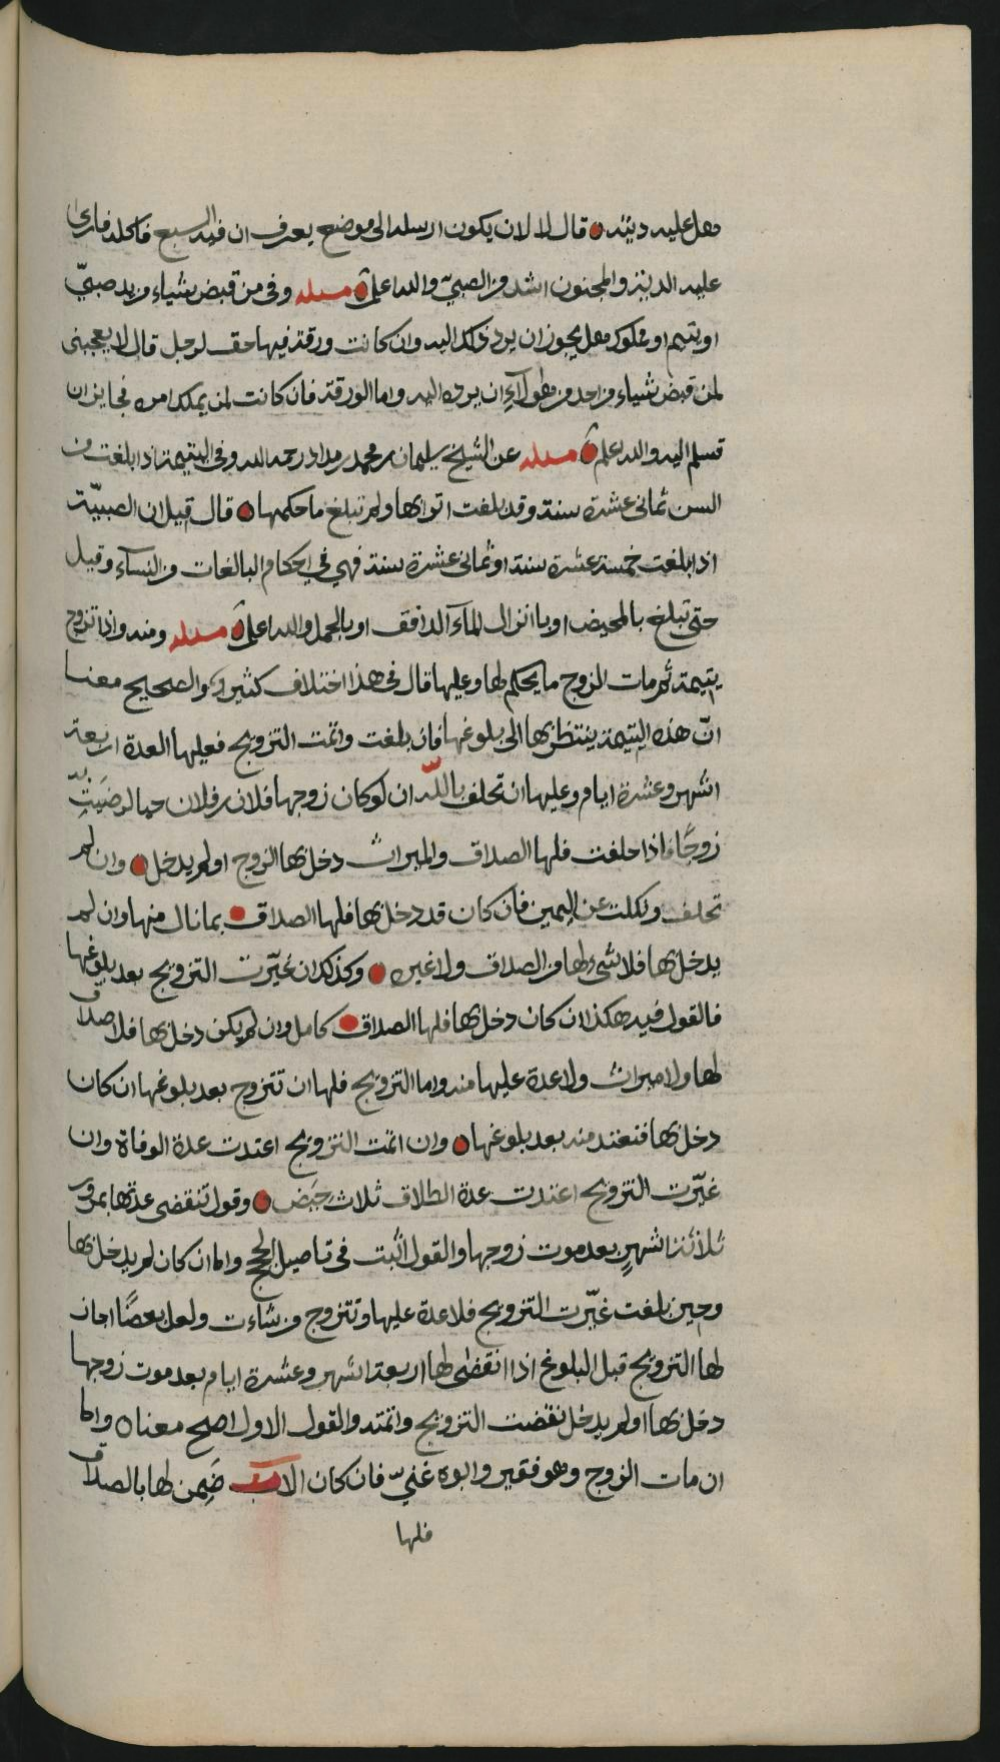 هل عليه ديته قال لا الا ان يكون ارسله الى موضع يعرف ان فيه السبع فاكله فارى
عليه الدية والمجنون اشد من الصبيّ والله اعلم مسئله وفي من قبض شياء من يد صبيّ
او يتيم او مملوك هل يجوز ان يرد ذلك اليه وان كانت ورقة فيها حق لرجل قال لا يعجبني
لمن قبض شياء من احد من هؤلآء ان يرده اليه واما الورقة فان كانت لمن يملك امره فجايز ان
تسلم اليه والله اعلم مسئله عن الشيخ سليمان بن محمد بن مداد رحمه الله وفي اليتيمة اذا بلغت من
السن ثماني عشرة سنة وقد بلغت اترابها ولم تبلغ ما حكمها قال قيل ان الصبيّة
اذا بلغت خمسة عشرة سنة او ثماني عشرة سنة فهي في احكام البالغات من النسآء وقيل
حتى تبلغ بالمحيض او بانزال المآء الدافق او بالحمل والله اعلم مسئله ومنه واذا تزوج
يتيمة ثم مات الزوج ما يحكم لها وعليها قال في هذا اختلاف كثير والصحيح معنا
انّ هذه اليتيمة ينتظر بها الى بلوغها فان بلغت واتمت التزويج فعليها العدة اربعة
اشهر وعشرة ايام وعليها ان تحلف بالله ان لو كان زوجها فلان بن فلان حيا لرضيت به
زوجًا فاذا حلفت فلها الصداق والميراث دخل بها الزوج او لم يدخل وان لم
تحلف ونكلت عن اليمين فان كان قد دخل بها فلها الصداق بما نال منها وان لم
يدخل بها فلا شي لها من الصداق ولا غيره وكذلك ان غيّرت التزويج بعد بلوغها
فالقول فيه هكذا ان كان دخل بها فلها الصداق كامل وان لم يكن دخل بها فلا صداق
لها ولا ميراث ولا عدة عليها منه واما التزويج فلها ان تتزوج بعد بلوغها ان كان
دخل بها فتعتد منه بعد بلوغها وان اتمت التزويج اعتدت عدة الوفاة وان
غيّرت التزويج اعتدت عدة الطلاق ثلاث حيَض وقول تنقضي عدتها بمرور
ثلاثة اشهرٍ بعد موت زوجها والقول اثبت في تاصيل الحجج واما ان كان لم يدخل بها
وحين بلغت غيّرت التزويج فلا عدة عليها وتتزوج من شاءت ولعل بعضًا اجاز
لها التزويج قبل البلوغ اذا انقضى لها اربعة اشهر وعشرة ايام بعد موت زوجها
دخل بها او لم يدخل نقضت التزويج واتمته والقول الاول اصح معناه واما
ان مات الزوج وهو فقير وابوه غنيّ فان كان الاب ضَمِن لها بالصداق
فلها